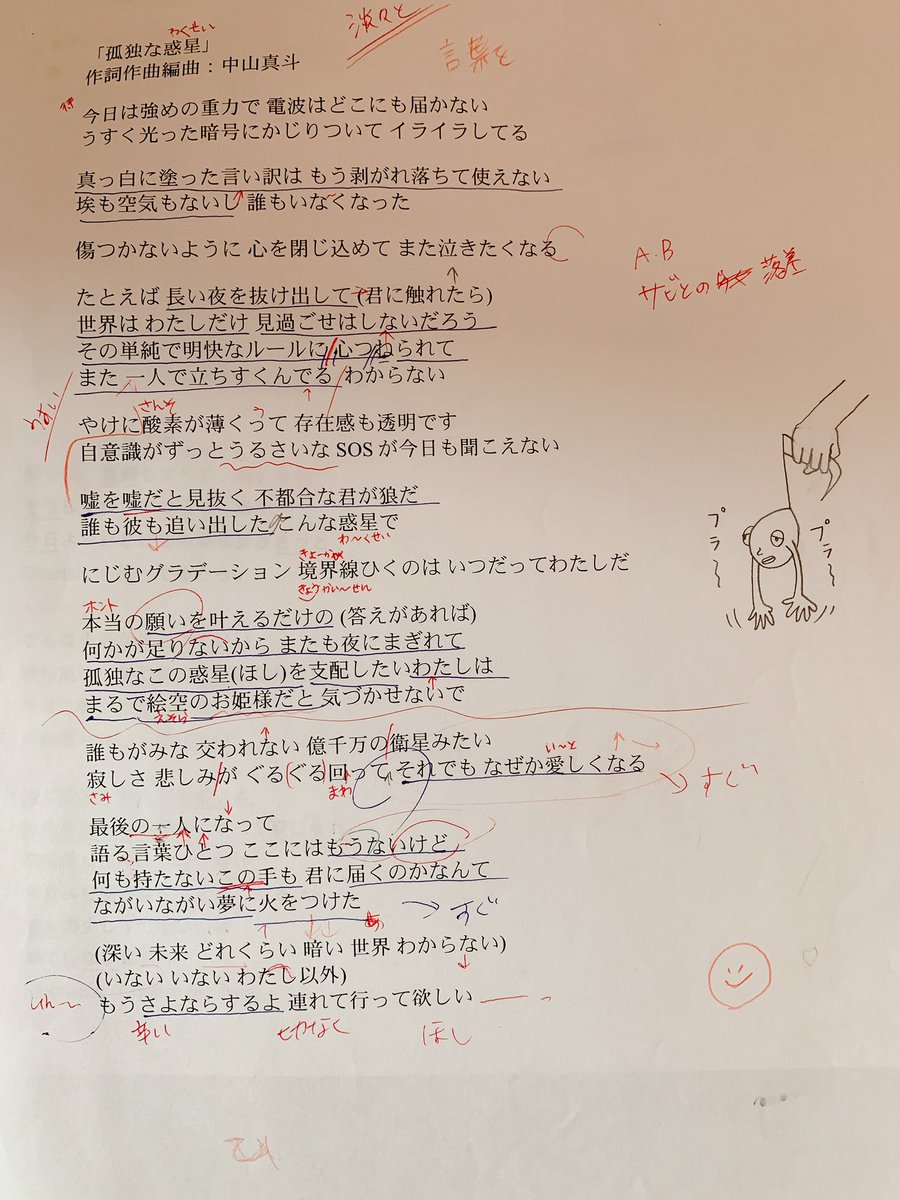 淡々と
言葉を
わくせい
「孤独な惑星」
作詞作曲編曲：中山真斗
今日は強めの重力で 電波はどこにも届かない
うすく光った暗号にかじりついて イライラしてる
真っ白に塗った言い訳は もう剥がれ落ちて使えない
埃も空気もないし 誰もいなくなった
傷つかないように 心を閉じ込めて また泣きたくなる
A.B
サビとの 落差
たとえば 長い夜を抜け出して (君に触れたら)
世界は わたしだけ 見過ごせはしないだろう
その単純で明快なルールに 心つねられて
また 一人で立ちすくんでる わからない
さんそ
やけに酸素が薄くって 存在感も透明です
自意識がずっとうるさいな SOS が今日も聞こえない
嘘を嘘だと見抜く 不都合な君が狼だ
誰も彼も追い出した こんな惑星で
わ〜くせい
プラ〜
プラ〜
きょーかい
にじむグラデーション 境界線ひくのは いつだってわたしだ
きょうかい〜せん
ホント
本当の願いを叶えるだけの (答えがあれば)
何かが足りないから またも夜にまぎれて
孤独なこの惑星(ほし)を 支配したいわたしは
まるで絵空のお姫様だと 気づかせないで
えそら
誰もがみな 交われない 億千万の衛星みたい
い〜と
寂しさ 悲しみが ぐる(ぐる)回って それでも なぜか愛しくなる
さみ
まわ
すぐ
最後の一人になって
語る言葉ひとつ ここにはもうないけど
何も持たないこの手も 君に届くのかなんて
ながいながい夢に 火をつけた
すぐ
(深い 未来 どれくらい 暗い 世界 わからない)
(いない いない わたし以外)
もうさよならするよ 連れて行って欲しい
辛い
切なく
ほし